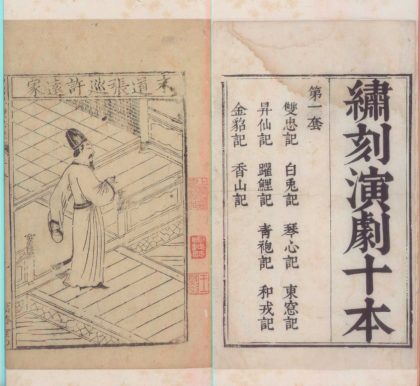 繡刻演劇十本
第一套
雙忠記 白兎記 琴心記 東窓記
昇仙記 躍鯉記 青袍記 和戎記
金貂記 香山記
末道張巡許遠家